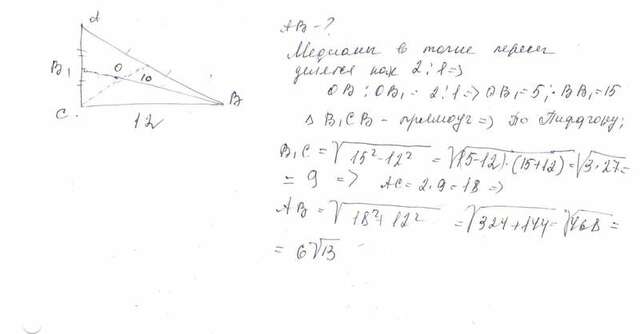 d
B₁
O
10
C
B
12
AB - ?
Медианы в точке перес
делятся как 2:1 =>
OB : OB₁ = 2:1 => OB₁ = 5; BB₁ = 15
Δ B₁CB - прямоуг => По Пифагору;
B₁C = √15² - 12² = √(15-12)·(15+12) = √3·27 =
= 9 => AC = 2·9 = 18 =>
AB = √18² + 12² = √324 + 144 = √468 =
= 6√13